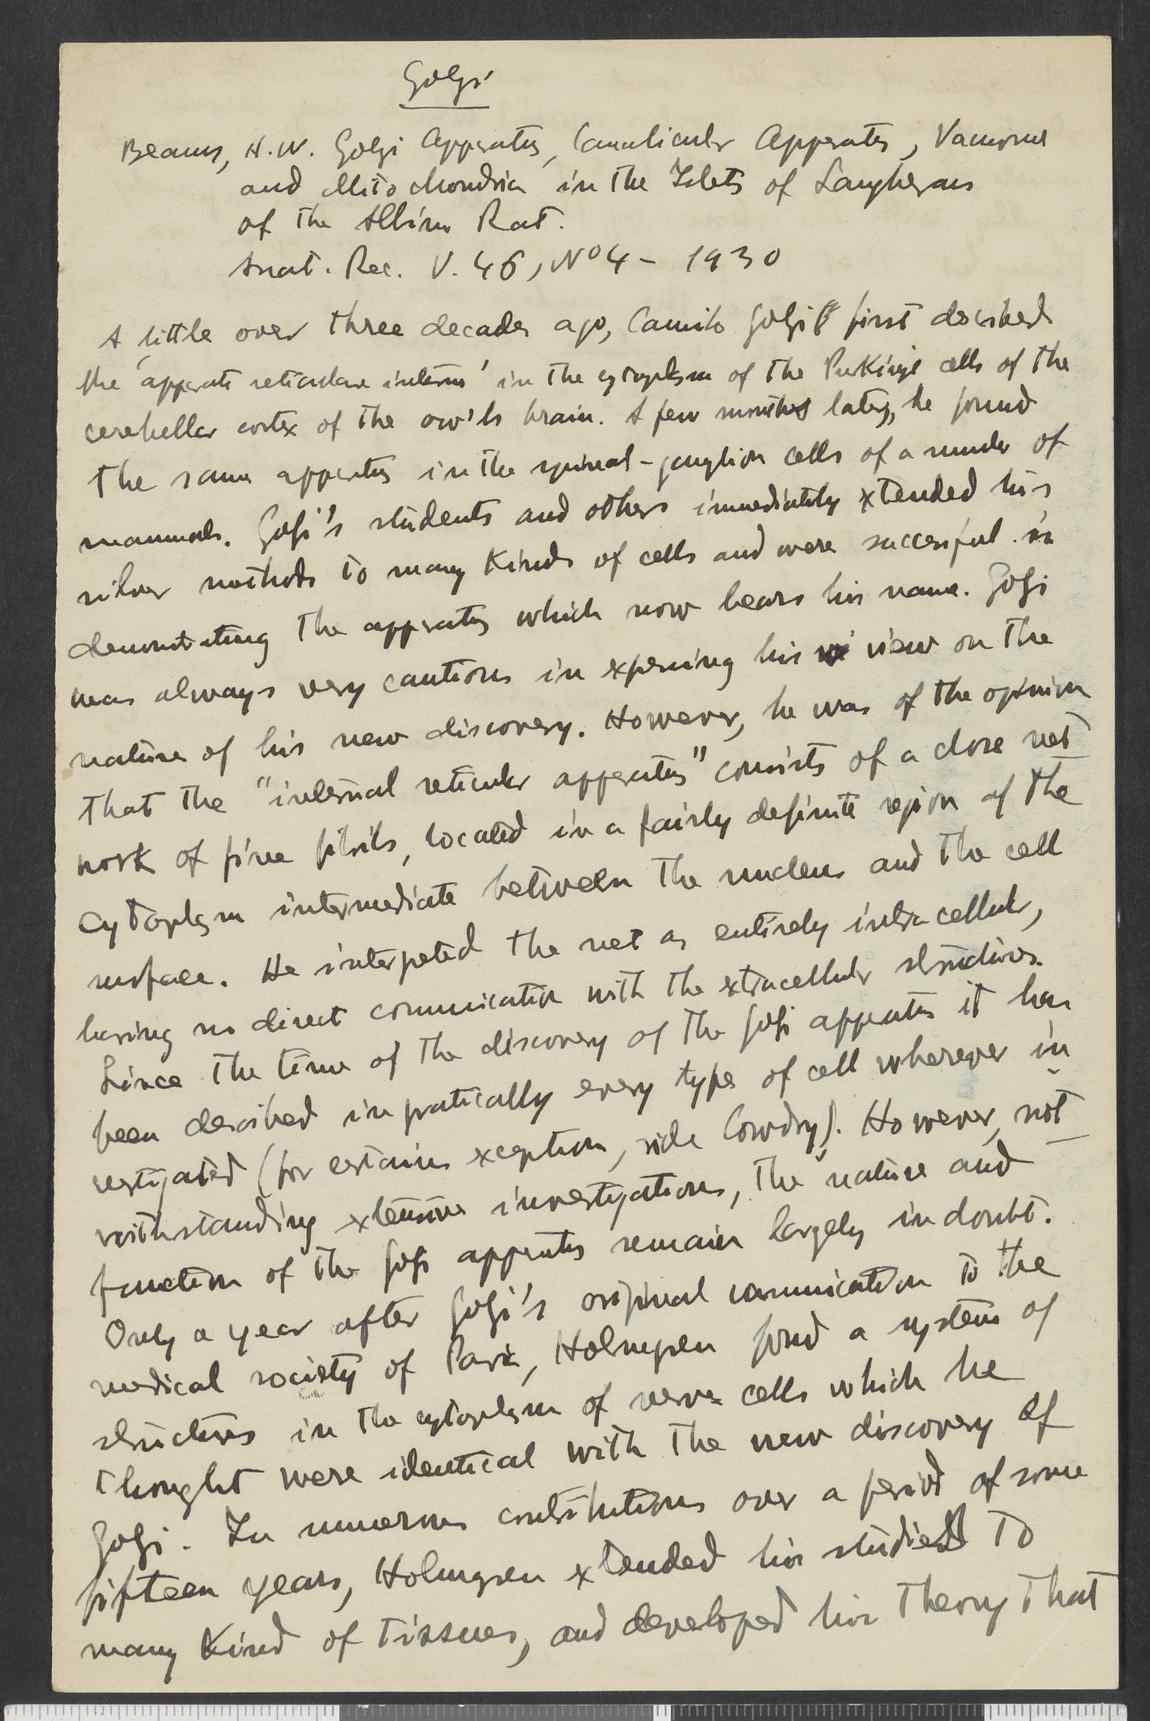 Golgi
Beams, H.W. Golgi Apparatus, Canalicular Apparatus, Vacuome
and Mitochondria in the Islets of Langherans
of the Albino Rat.
Anat. Rec. V. 46, Nº4 - 1930
A little over three decades ago, Camilo Golgi first described
the 'apparato reticolare interno' in the cytoplasm of the Purkinje cells of the
cerebellar cortex of the owl's brain. A few months later, he found
the same apparatus in the spinal-ganglion cells of a number of
mammals. Golgi's students and others immediately extended his
silver methods to many kinds of cells and were succesful in
demonstrating the apparatus which now bears his name. Golgi
was always very cautious in expresing his view on the
nature of his new discovery. However, he was of the opinion
that the "internal reticular apparatus" consists of a close net
work of fine fibrils, located in a fairly definite region of the
cytoplasm intermediate between the nucleus and the cell
surface. He interpeted the net as entirely intra cellular,
having no direct communication with the extracellular structures.
Since the time of the discovery of the Golgi apparatus it has
been described in pratically every type of cell wherever in
vestigated (for certain exception, vide Cowdry). However, not
withstanding extensive investigations, the nature and
function of the Golgi apparatus remain largely in doubt.
Only a year after Golgi's original comunication to the
medical society of Pavia, Holmgren found a system of
structures in the cytoplasm of nerve cells which he
thought were identical with the new discovery of
Golgi. In numerous contributions over a period of some
fifteen years, Holmgren extended his studies to
many kind of tissues, and developed his theory that